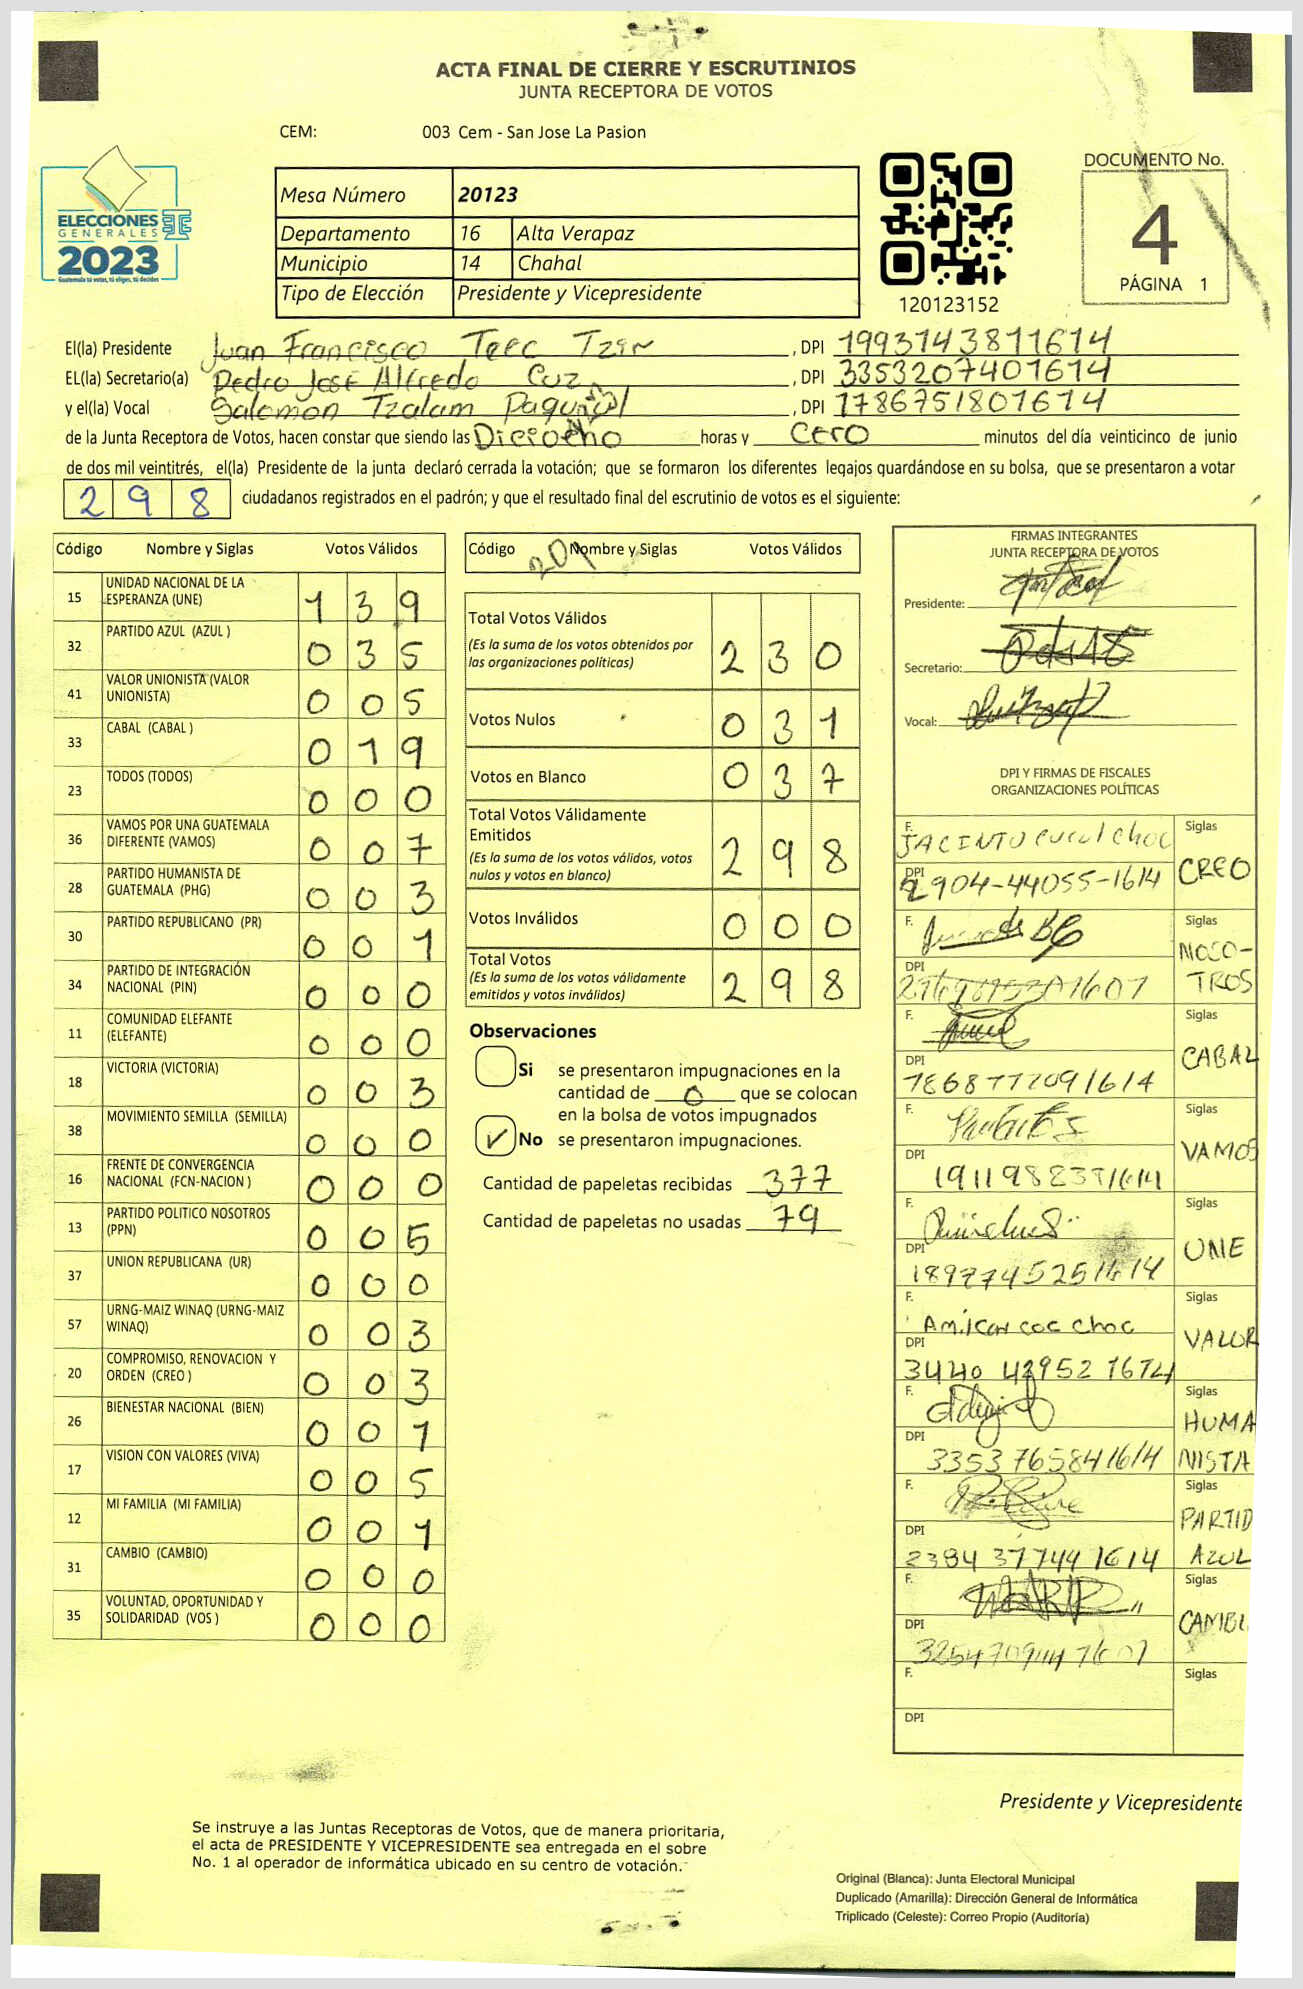 ACTA FINAL DE CIERRE Y ESCRUTINIOS
JUNTA RECEPTORA DE VOTOS
CEM: 003 Cem - San Jose La Pasion
ELECCIONES
GENERALES
2023
Guatemala tú votas, tú eliges, tú decides
Mesa Número 20123
Departamento 16 Alta Verapaz
Municipio 14 Chahal
Tipo de Elección Presidente y Vicepresidente
120123152
DOCUMENTO No.
4
PÁGINA 1
El(la) Presidente Juan Francisco Teec Tzin , DPI 1993143811614
EL(la) Secretario(a) Pedro José Alfredo Cuz , DPI 3353207401614
y el(la) Vocal Salomon Tzalam Paquiul , DPI 1786751801614
de la Junta Receptora de Votos, hacen constar que siendo las Dicioeho horas y cero minutos del día veinticinco de junio
de dos mil veintitrés, el(la) Presidente de la junta declaró cerrada la votación; que se formaron los diferentes legajos quardándose en su bolsa, que se presentaron a votar
298 ciudadanos registrados en el padrón; y que el resultado final del escrutinio de votos es el siguiente:
Código Nombre y Siglas Votos Válidos
15 UNIDAD NACIONAL DE LA ESPERANZA (UNE) 139
32 PARTIDO AZUL (AZUL ) 035
41 VALOR UNIONISTA (VALOR UNIONISTA) 005
33 CABAL (CABAL ) 019
23 TODOS (TODOS) 000
36 VAMOS POR UNA GUATEMALA DIFERENTE (VAMOS) 007
28 PARTIDO HUMANISTA DE GUATEMALA (PHG) 003
30 PARTIDO REPUBLICANO (PR) 001
34 PARTIDO DE INTEGRACIÓN NACIONAL (PIN) 000
11 COMUNIDAD ELEFANTE (ELEFANTE) 000
18 VICTORIA (VICTORIA) 003
38 MOVIMIENTO SEMILLA (SEMILLA) 000
16 FRENTE DE CONVERGENCIA NACIONAL (FCN-NACION ) 000
13 PARTIDO POLITICO NOSOTROS (PPN) 005
37 UNION REPUBLICANA (UR) 000
57 URNG-MAIZ WINAQ (URNG-MAIZ WINAQ) 003
20 COMPROMISO, RENOVACION Y ORDEN (CREO ) 003
26 BIENESTAR NACIONAL (BIEN) 001
17 VISION CON VALORES (VIVA) 005
12 MI FAMILIA (MI FAMILIA) 001
31 CAMBIO (CAMBIO) 000
35 VOLUNTAD, OPORTUNIDAD Y SOLIDARIDAD (VOS ) 000
Código Nombre y Siglas Votos Válidos
Total Votos Válidos 230
(Es la suma de los votos obtenidos por
las organizaciones políticas)
Votos Nulos 031
Votos en Blanco 037
Total Votos Válidamente
Emitidos 298
(Es la suma de los votos válidos, votos
nulos y votos en blanco)
Votos Inválidos 000
Total Votos 298
(Es la suma de los votos válidamente
emitidos y votos inválidos)
Observaciones
Si se presentaron impugnaciones en la
cantidad de 0 que se colocan
en la bolsa de votos impugnados
✓ No se presentaron impugnaciones.
Cantidad de papeletas recibidas 377
Cantidad de papeletas no usadas 79
FIRMAS INTEGRANTES
JUNTA RECEPTORA DE VOTOS
Presidente:
Secretario:
Vocal:
DPI Y FIRMAS DE FISCALES
ORGANIZACIONES POLÍTICAS
F. JACINTO cucul choc Siglas
DPI 2904-44055-1614 CREO
F. Siglas
DPI NOSO-TROS
F. Siglas
DPI 7868777091614 CABAL
F. Siglas
DPI VAMOS
F. Siglas
DPI 1897745251614 UNE
F. Amilcar coc choc Siglas
DPI 3440 42952 1614 VALOR
F. Siglas
DPI 3353765841614 HUMANISTA
F. Siglas
DPI 2384 37744 1614 PARTID AZUL
F. Siglas
DPI CAMBI
F. Siglas
DPI
Presidente y Vicepresidente
Se instruye a las Juntas Receptoras de Votos, que de manera prioritaria,
el acta de PRESIDENTE Y VICEPRESIDENTE sea entregada en el sobre
No. 1 al operador de informática ubicado en su centro de votación.
Original (Blanca): Junta Electoral Municipal
Duplicado (Amarilla): Dirección General de Informática
Triplicado (Celeste): Correo Propio (Auditoría)